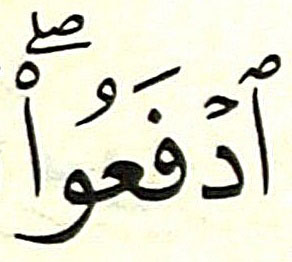 ٱدۡفَعُواْۖ